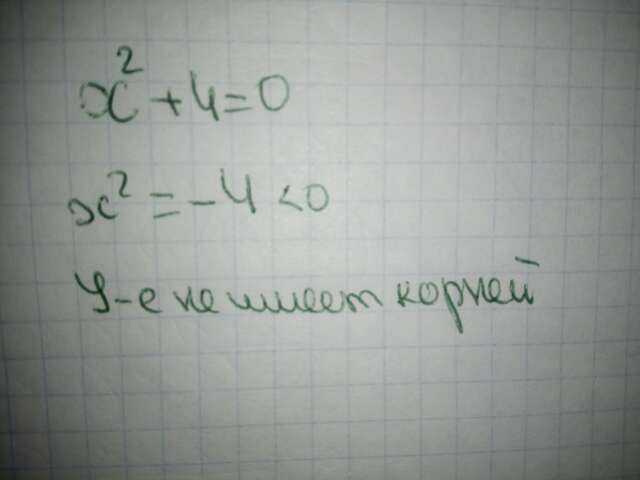 x² + 4 = 0
x² = -4 < 0
Ур-е не имеет корней